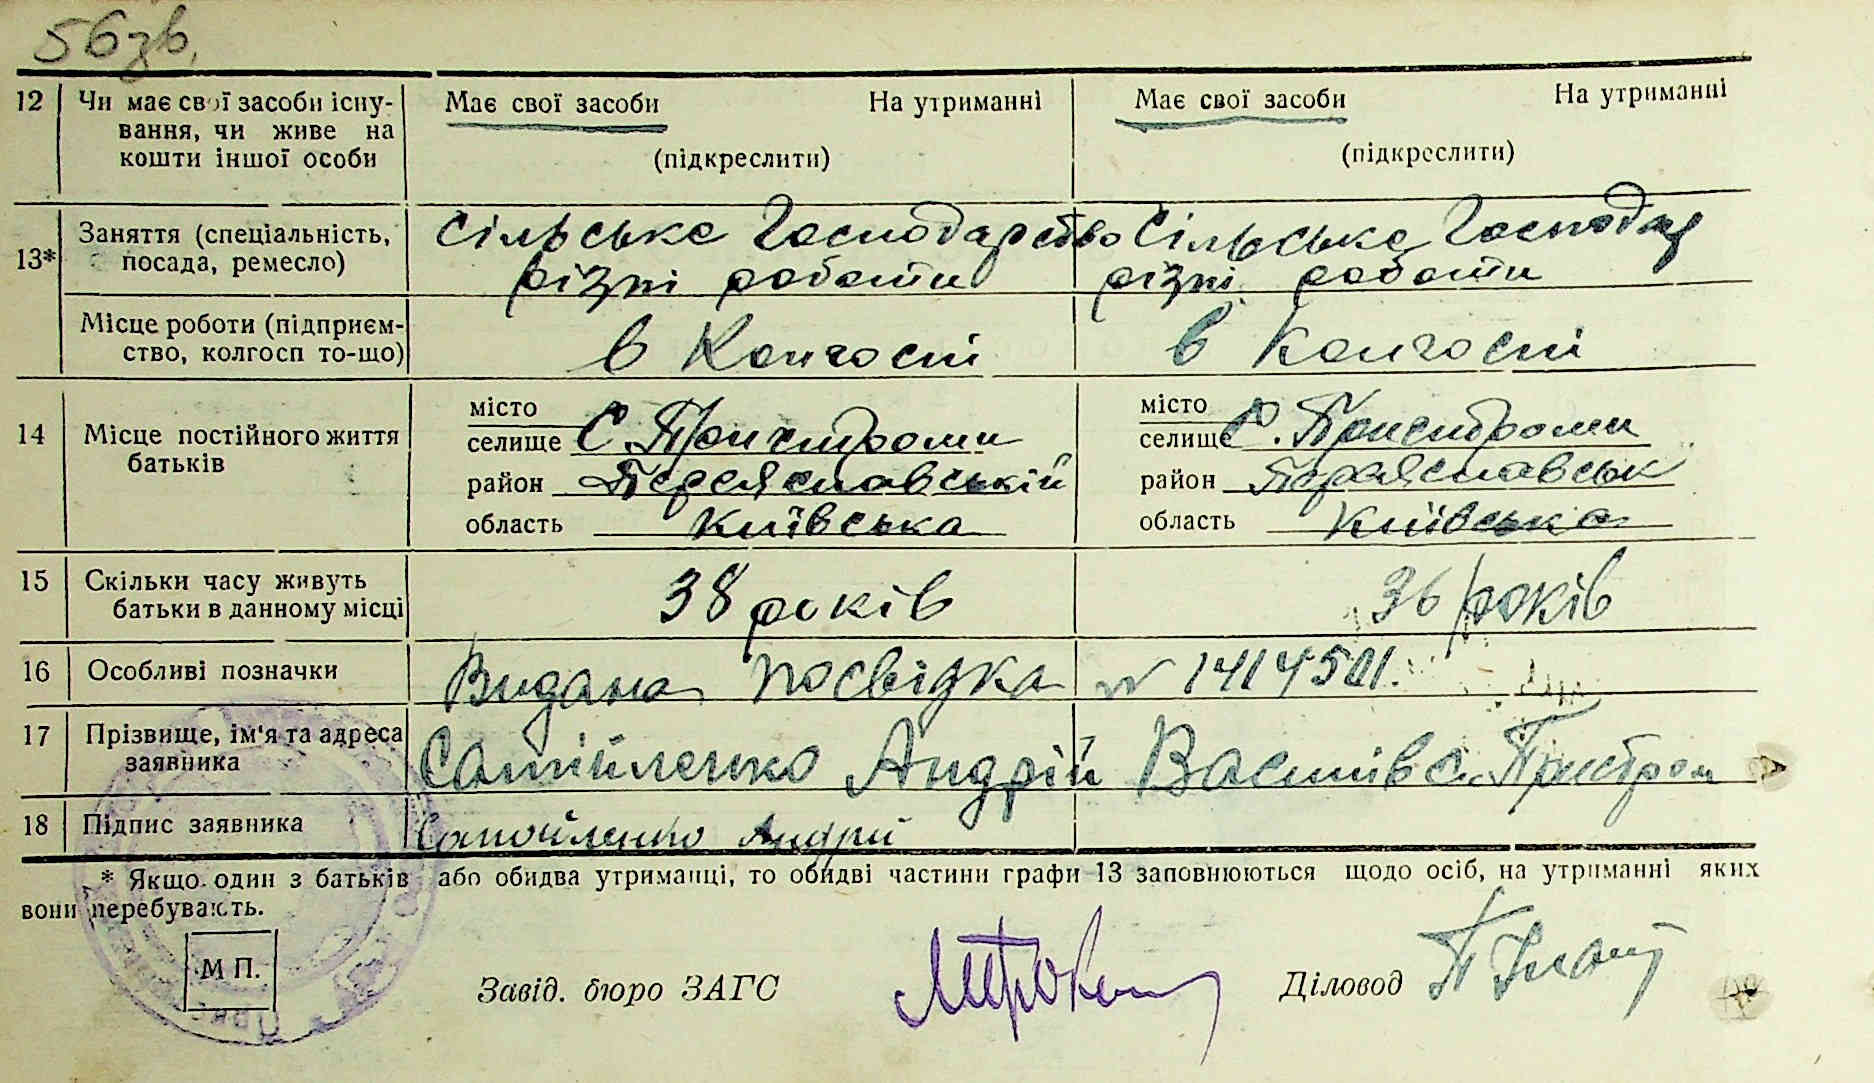 56зв.
12 Чи має свої засоби існу-
вання, чи живе на
кошти іншої особи
Має свої засоби На утриманні
(підкреслити)
Має свої засоби На утриманні
(підкреслити)
13* Заняття (спеціальність,
посада, ремесло)
Сільське Господарство
різні работи
Сільське Господар
різні работи
Місце роботи (підприєм-
ство, колгосп то-що)
в Колгоспі
в Колгоспі
14 Місце постійного життя
батьків
місто
селище С. Пристроми
район Переяславській
область Київська
місто
селище С. Пристроми
район Переяславськ
область Київська
15 Скільки часу живуть
батьки в данному місці
38 років
36 років
16 Особливі позначки
Видана посвідка № 1414501.
17 Прізвище, ім'я та адреса
заявника
Самійленко Андрій Василів с. Пристром
18 Підпис заявника
Самойленко Андрій
* Якщо один з батьків або обидва утриманці, то обидві частини графи 13 заповнюються щодо осіб, на утриманні яких
вони перебувають.
М П.
Завід. бюро ЗАГС
Діловод